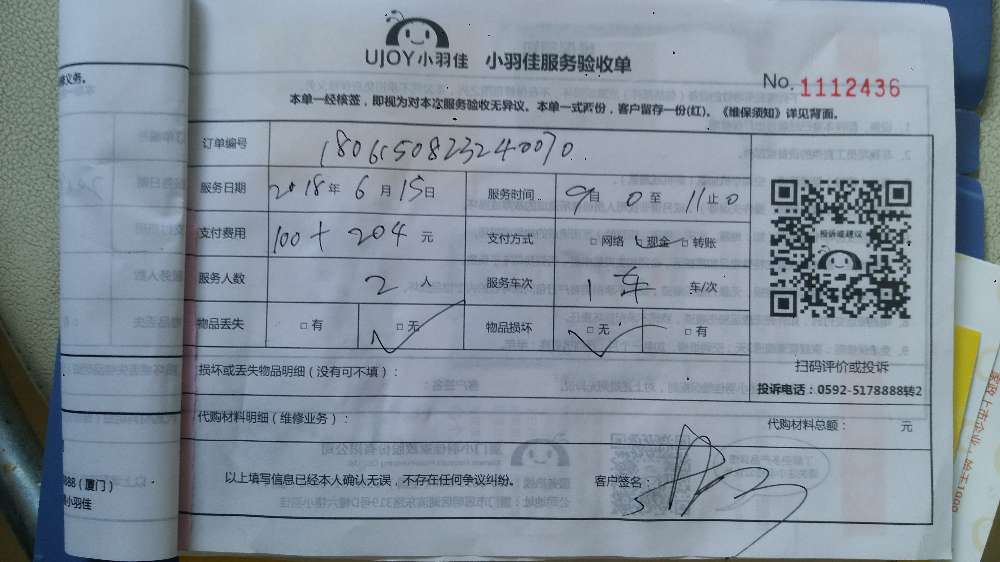 UJOY小羽佳 小羽佳服务验收单
No. 1112436
本单一经核签，即视为对本次服务验收无异议。本单一式两份，客户留存一份(红)。《维保须知》详见背面。
订单编号
服务日期 2018年 6月 15日 服务时间 9自 0 至 11止0
支付费用 100+204 元 支付方式 □网络 □现金 □转账
服务人数 2 人 服务车次 1车 车/次
物品丢失 □有 □无 物品损坏 □无 □有
投诉或建议
扫码评价或投诉
投诉电话：0592-5178888转2
损坏或丢失物品明细（没有可不填）：
代购材料明细（维修业务）： 代购材料总额： 元
以上填写信息已经本人确认无误，不存在任何争议纠纷。 客户签名：
义务。
088（厦门）
小羽佳